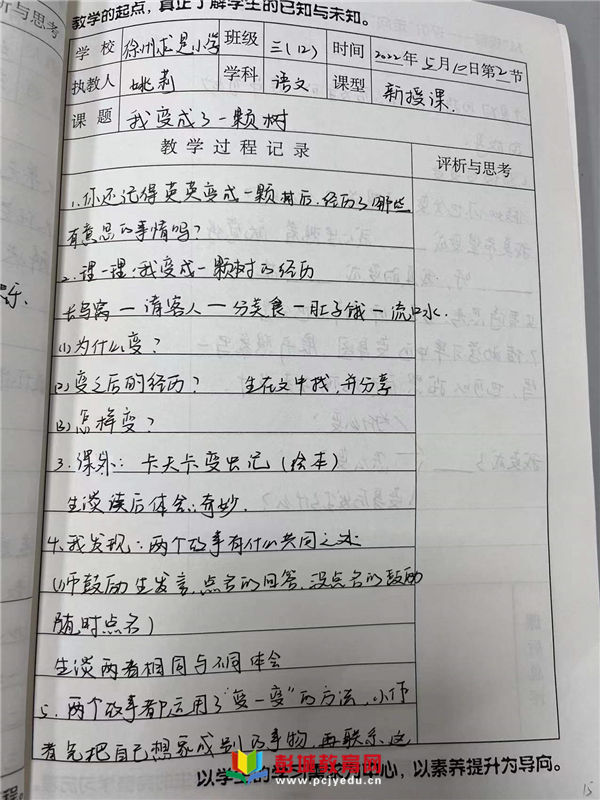 析与思考
教学的起点，真正了解学生的已知与未知。
学 校 徐州求是小学 班级 三(12) 时间 2022年5月10日第2节
执教人 姚莉 学科 语文 课型 新授课.
课 题 我变成了一颗树
教 学 过 程 记 录 评析与思考
1.你还记得英英变成一颗树后,经历了哪些
有意思的事情吗?
2.理一理:我变成一颗树的经历
鸟窝 — 请客人 — 分美食 — 肚子饿 — 流口水.
(1)为什么变?
(2)变之后的经历? 生在文中找,并分享
(3)怎样变?
3.课外: 卡夫卡变虫记(绘本)
生谈读后体会:奇妙.
4.我发现:两个故事有什么共同之处
(师鼓励生发言,点名的回答,没点名的鼓励
随时点名)
生谈两者相同与不同体会
5.两个故事都运用了"变一变"的方法,小作
者先把自己想象成别的事物,再联系这
以学生的学习需求为中心，以素养提升为导向。
彭城教育网
www.pcjyedu.cn
15
程。